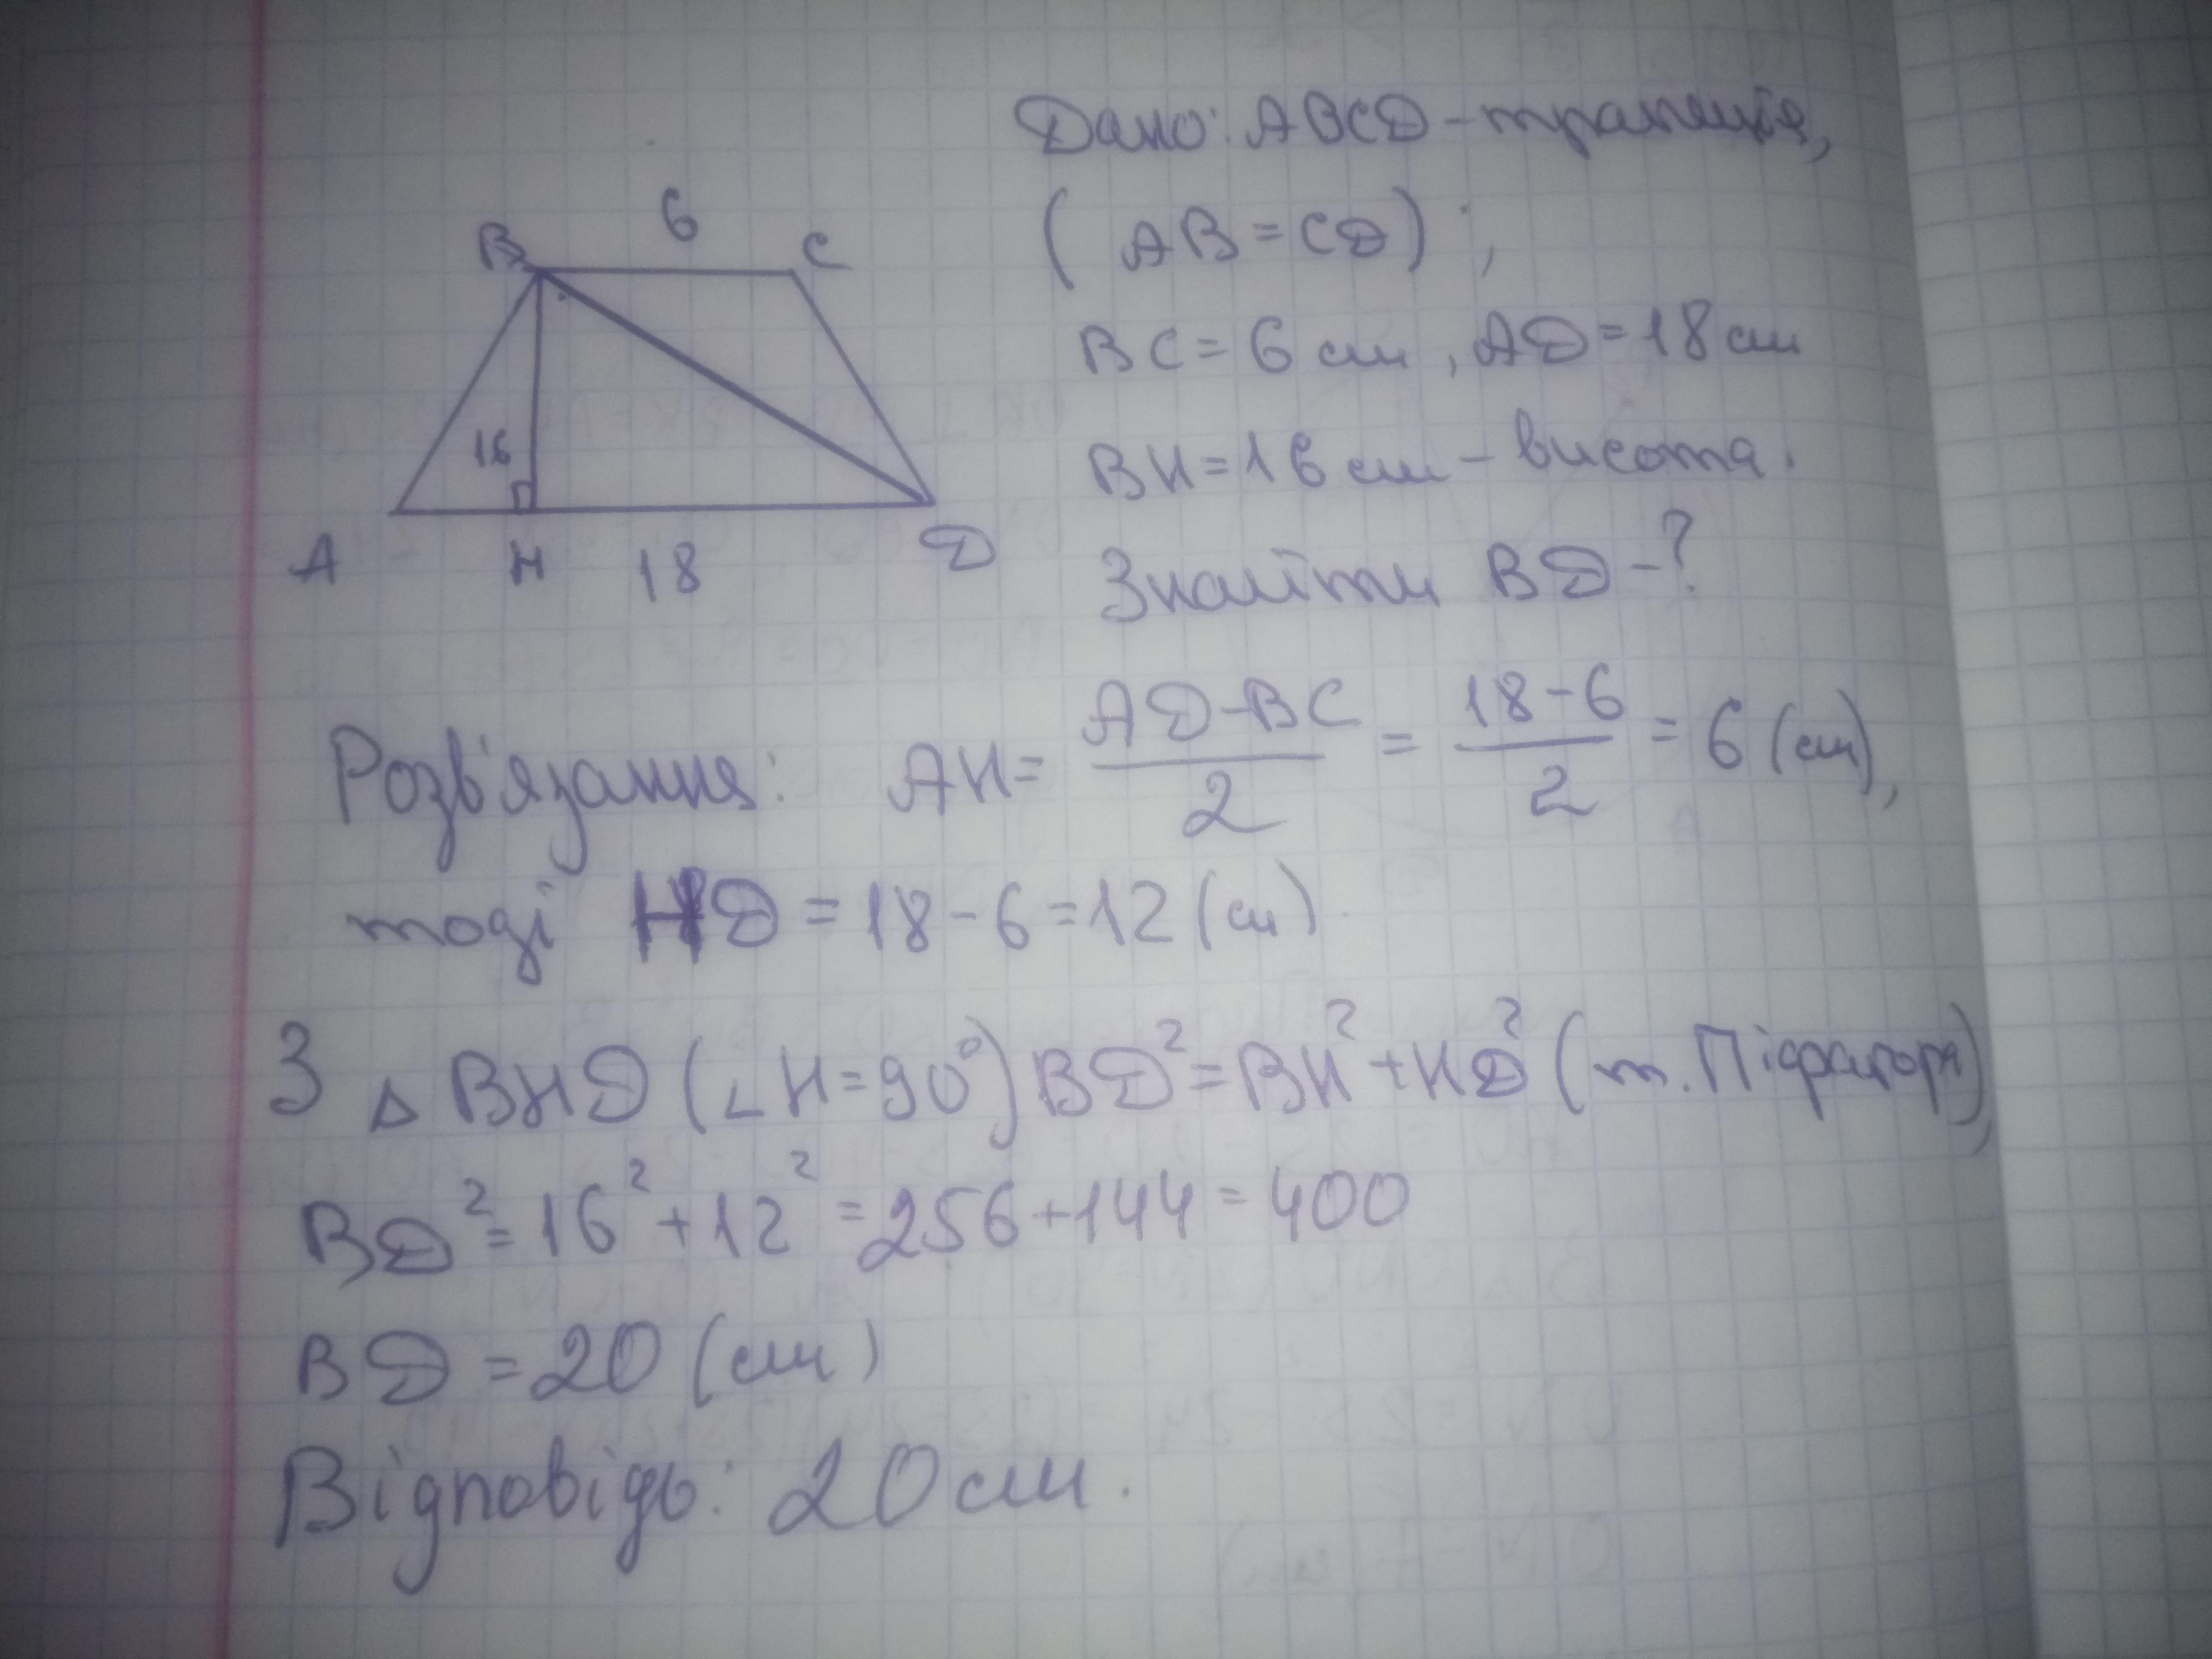 Дано: ABCD - трапеція,
(AB = CD);
BC = 6 см, AD = 18 см
BH = 16 см - висота.
Знайти BD - ?
B 6 C
16
A H 18 D
Розв'язання: AH = \frac{AD - BC}{2} = \frac{18 - 6}{2} = 6 (см),
тоді HD = 18 - 6 = 12 (см)
З △ BHD (∠H = 90°) BD² = BH² + HD² (т. Піфагора),
BD² = 16² + 12² = 256 + 144 = 400
BD = 20 (см)
Відповідь: 20 см.